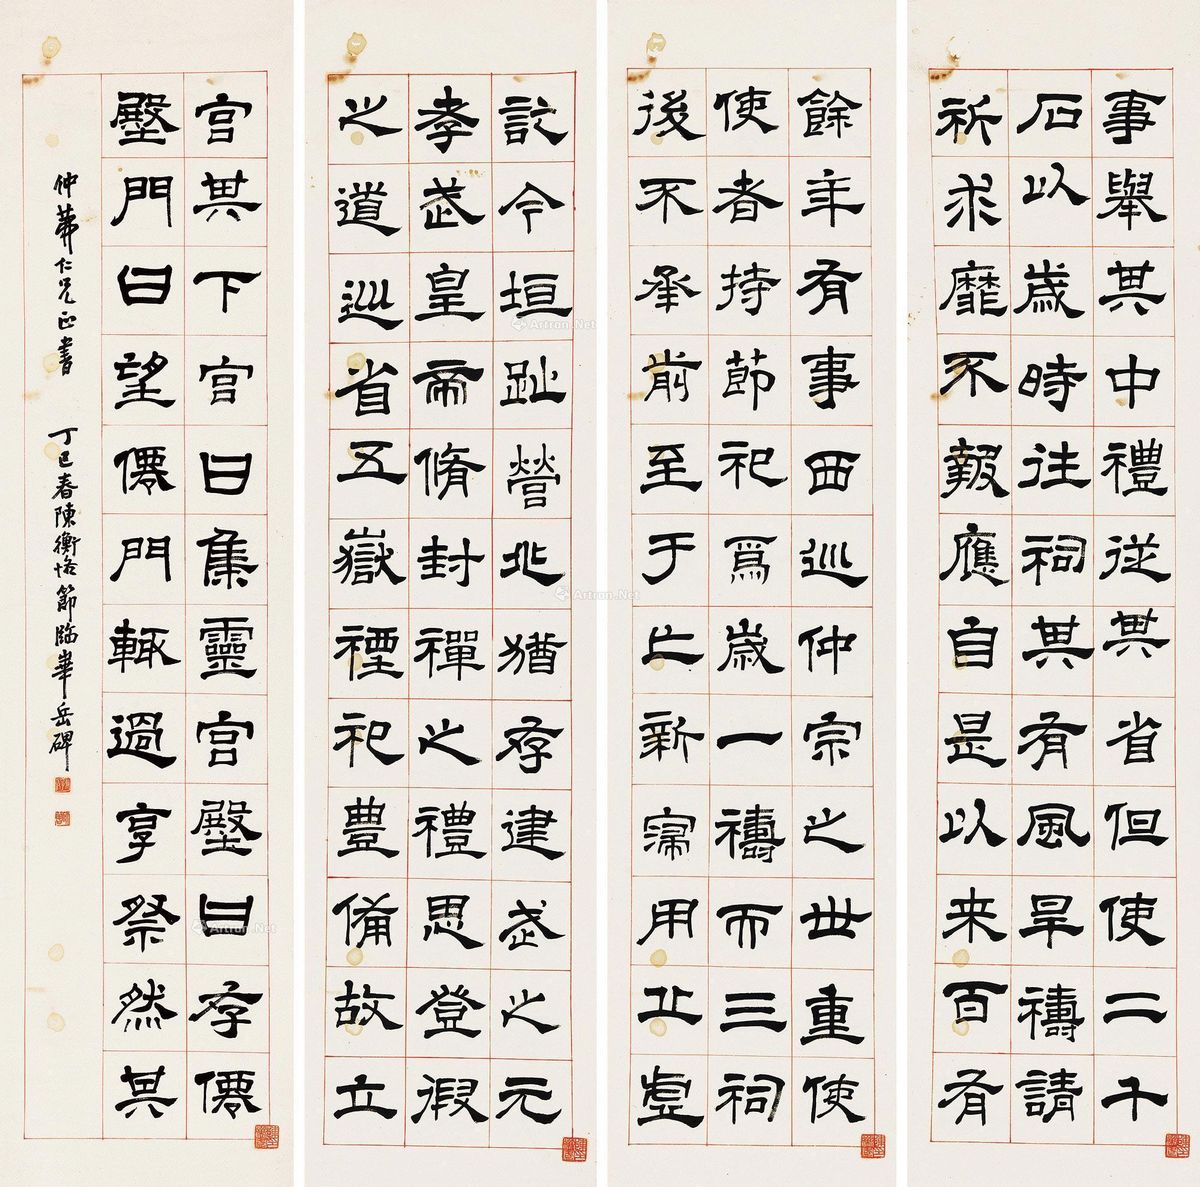 事舉其中禮従其省但使二千
石以歳時往祠其有風旱禱請
祈求靡不報應自是以来百有
餘年有事西巡仲宗之世重使
使者持節祀焉歳一禱而三祠
後不承前至于亡新寖用丘虚
訖今垣趾營兆猶存建武之元
孝武皇帝脩封禪之禮思登徦
之道巡省五嶽禋祀豊備故立
宮其下宮曰集靈宮壂曰存僊
壂門曰望僊門輒過享祭然其
仲仁兄正書 丁巳春陳衡恪節臨華岳碑
Artron.Net
Artron.Net
Artron.Net